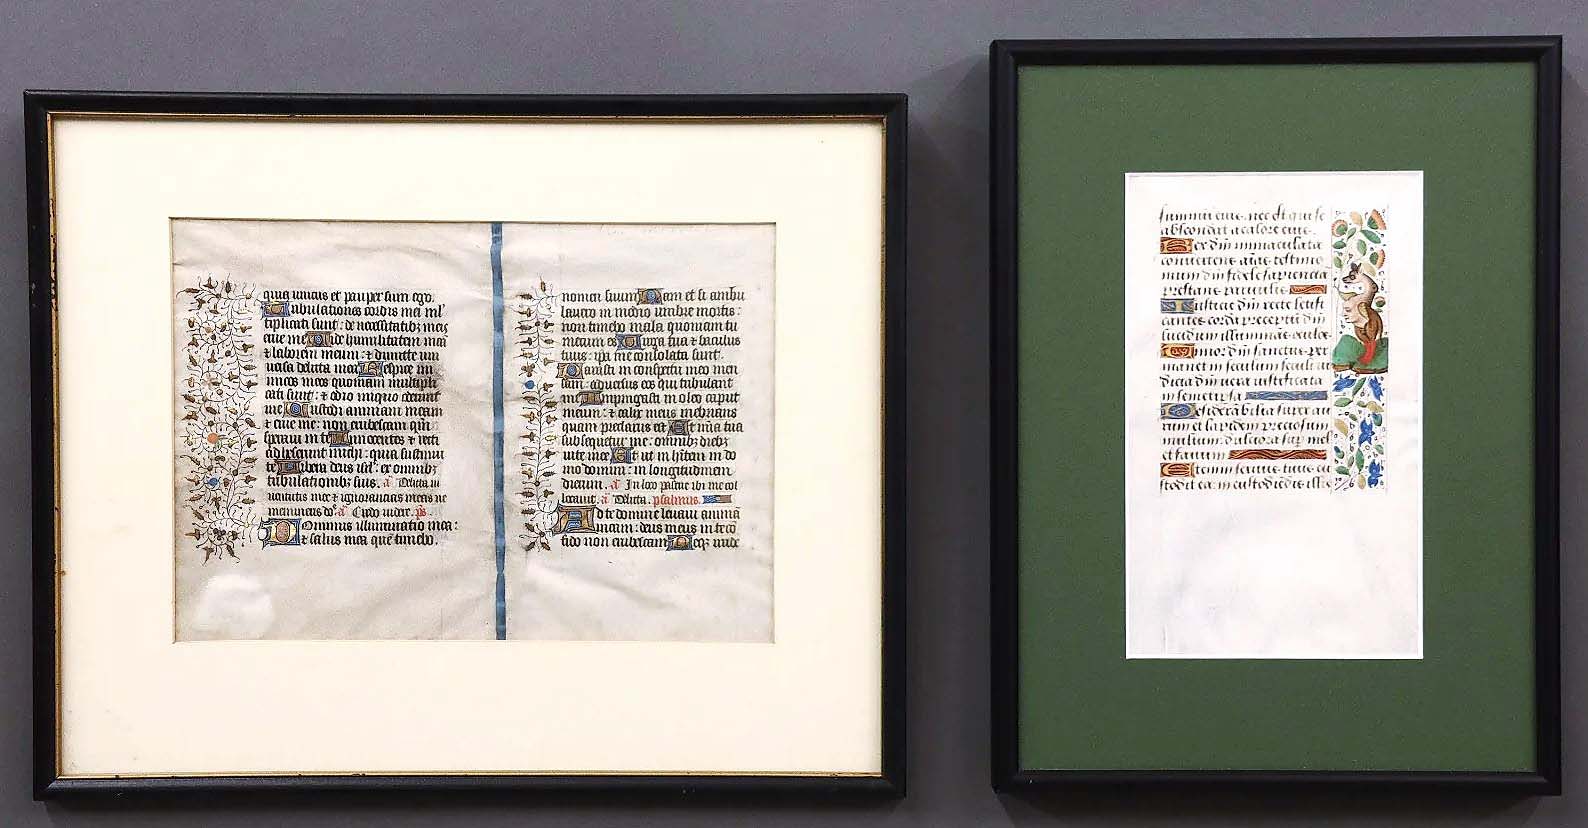 quia unicus et pauper sum ego.
Tribulationes cordis mei ml'
tiplicati sunt: de necessitatib; meis
erue me Vide humilitatem meā
& laborem meum: & dimitte uni
uersa delicta mea Respice ini
micos meos quoniam multipli
cati sunt: & odio iniquo oderunt
me Custodi animam meam
& erue me: non erubescam qm̄
speraui in te Innocentes & recti
adheserunt michi: quia sustinui
te Libera deus isrl': ex omnib;
tribulationib; suis. a Delicta iu
uentutis mee & ignorancias meas ne
memineris do. a Credo uidere. ps
Dominus illuminatio mea:
& salus mea quē timebo.
nomen suum Nam et si ambu
lauero in medio umbre mortis:
non timebo mala quoniam tu
mecum es Virga tua & baculus
tuus: ipa me consolata sunt.
Parasti in conspectu meo men
sam: aduersus eos qui tribulant
me Impinguasti in oleo caput
meum: & calix meus inebrians
quam preclarus est Et mīa tua
subsequetur me: omnib; dieb;
uite mee Et ut in hītem in do
mo domini: in longitudinem
dierum. a In loco pascue ibi me col
locauit. a Delicta. psalmus.
Ad te domine leuaui animā
meam: deus meus in te cō
fido non erubescam Neq; irride
summū eius. nec est qui se
abscondat a calore eius.
Lex dñi immaculata
conuertens aīas testimo
nium dñi fidele sapiencia
prestans paruulis
Iusticie dñi recte letifi
cantes corda preceptū dñi
lucidum illuminās oculos
Timor dñi sanctus per
manet in seculum seculi iu
dicia dñi vera iustificata
in semetipsa
Desiderabilia super au
rum et lapidem preciosum
multum: dulciora sup mel
et fauum
Etenim seruus tuus cu
stodit ea: in custodiēdis illis